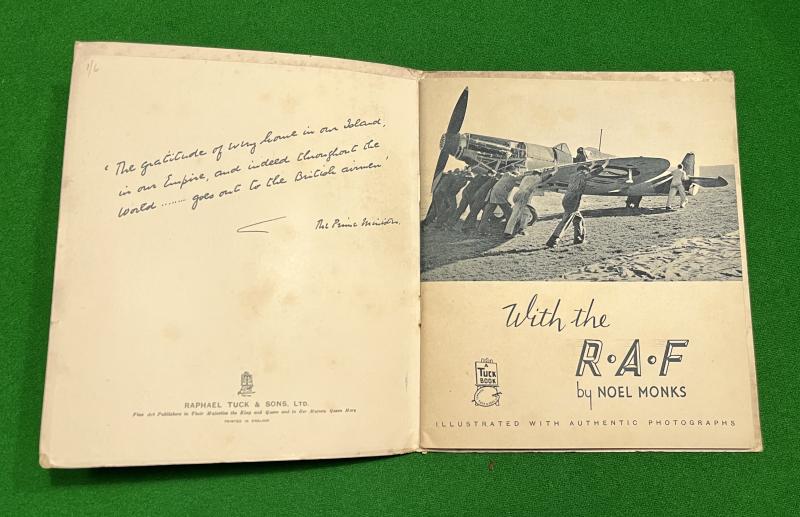 1/6
"The gratitude of every home in our Island,
in our Empire, and indeed throughout the
World ........ goes out to the British airmen'
The Prime Minister.
RAPHAEL TUCK & SONS, LTD.
Fine Art Publishers to Their Majesties the King and Queen and to Her Majesty Queen Mary
PRINTED IN ENGLAND
With the
R·A·F
by NOEL MONKS
A
TUCK
BOOK
ILLUSTRATED WITH AUTHENTIC PHOTOGRAPHS